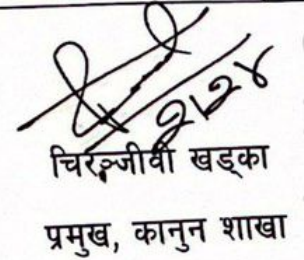 २।२४
चिरञ्जीवी खड्का
प्रमुख, कानुन शाखा